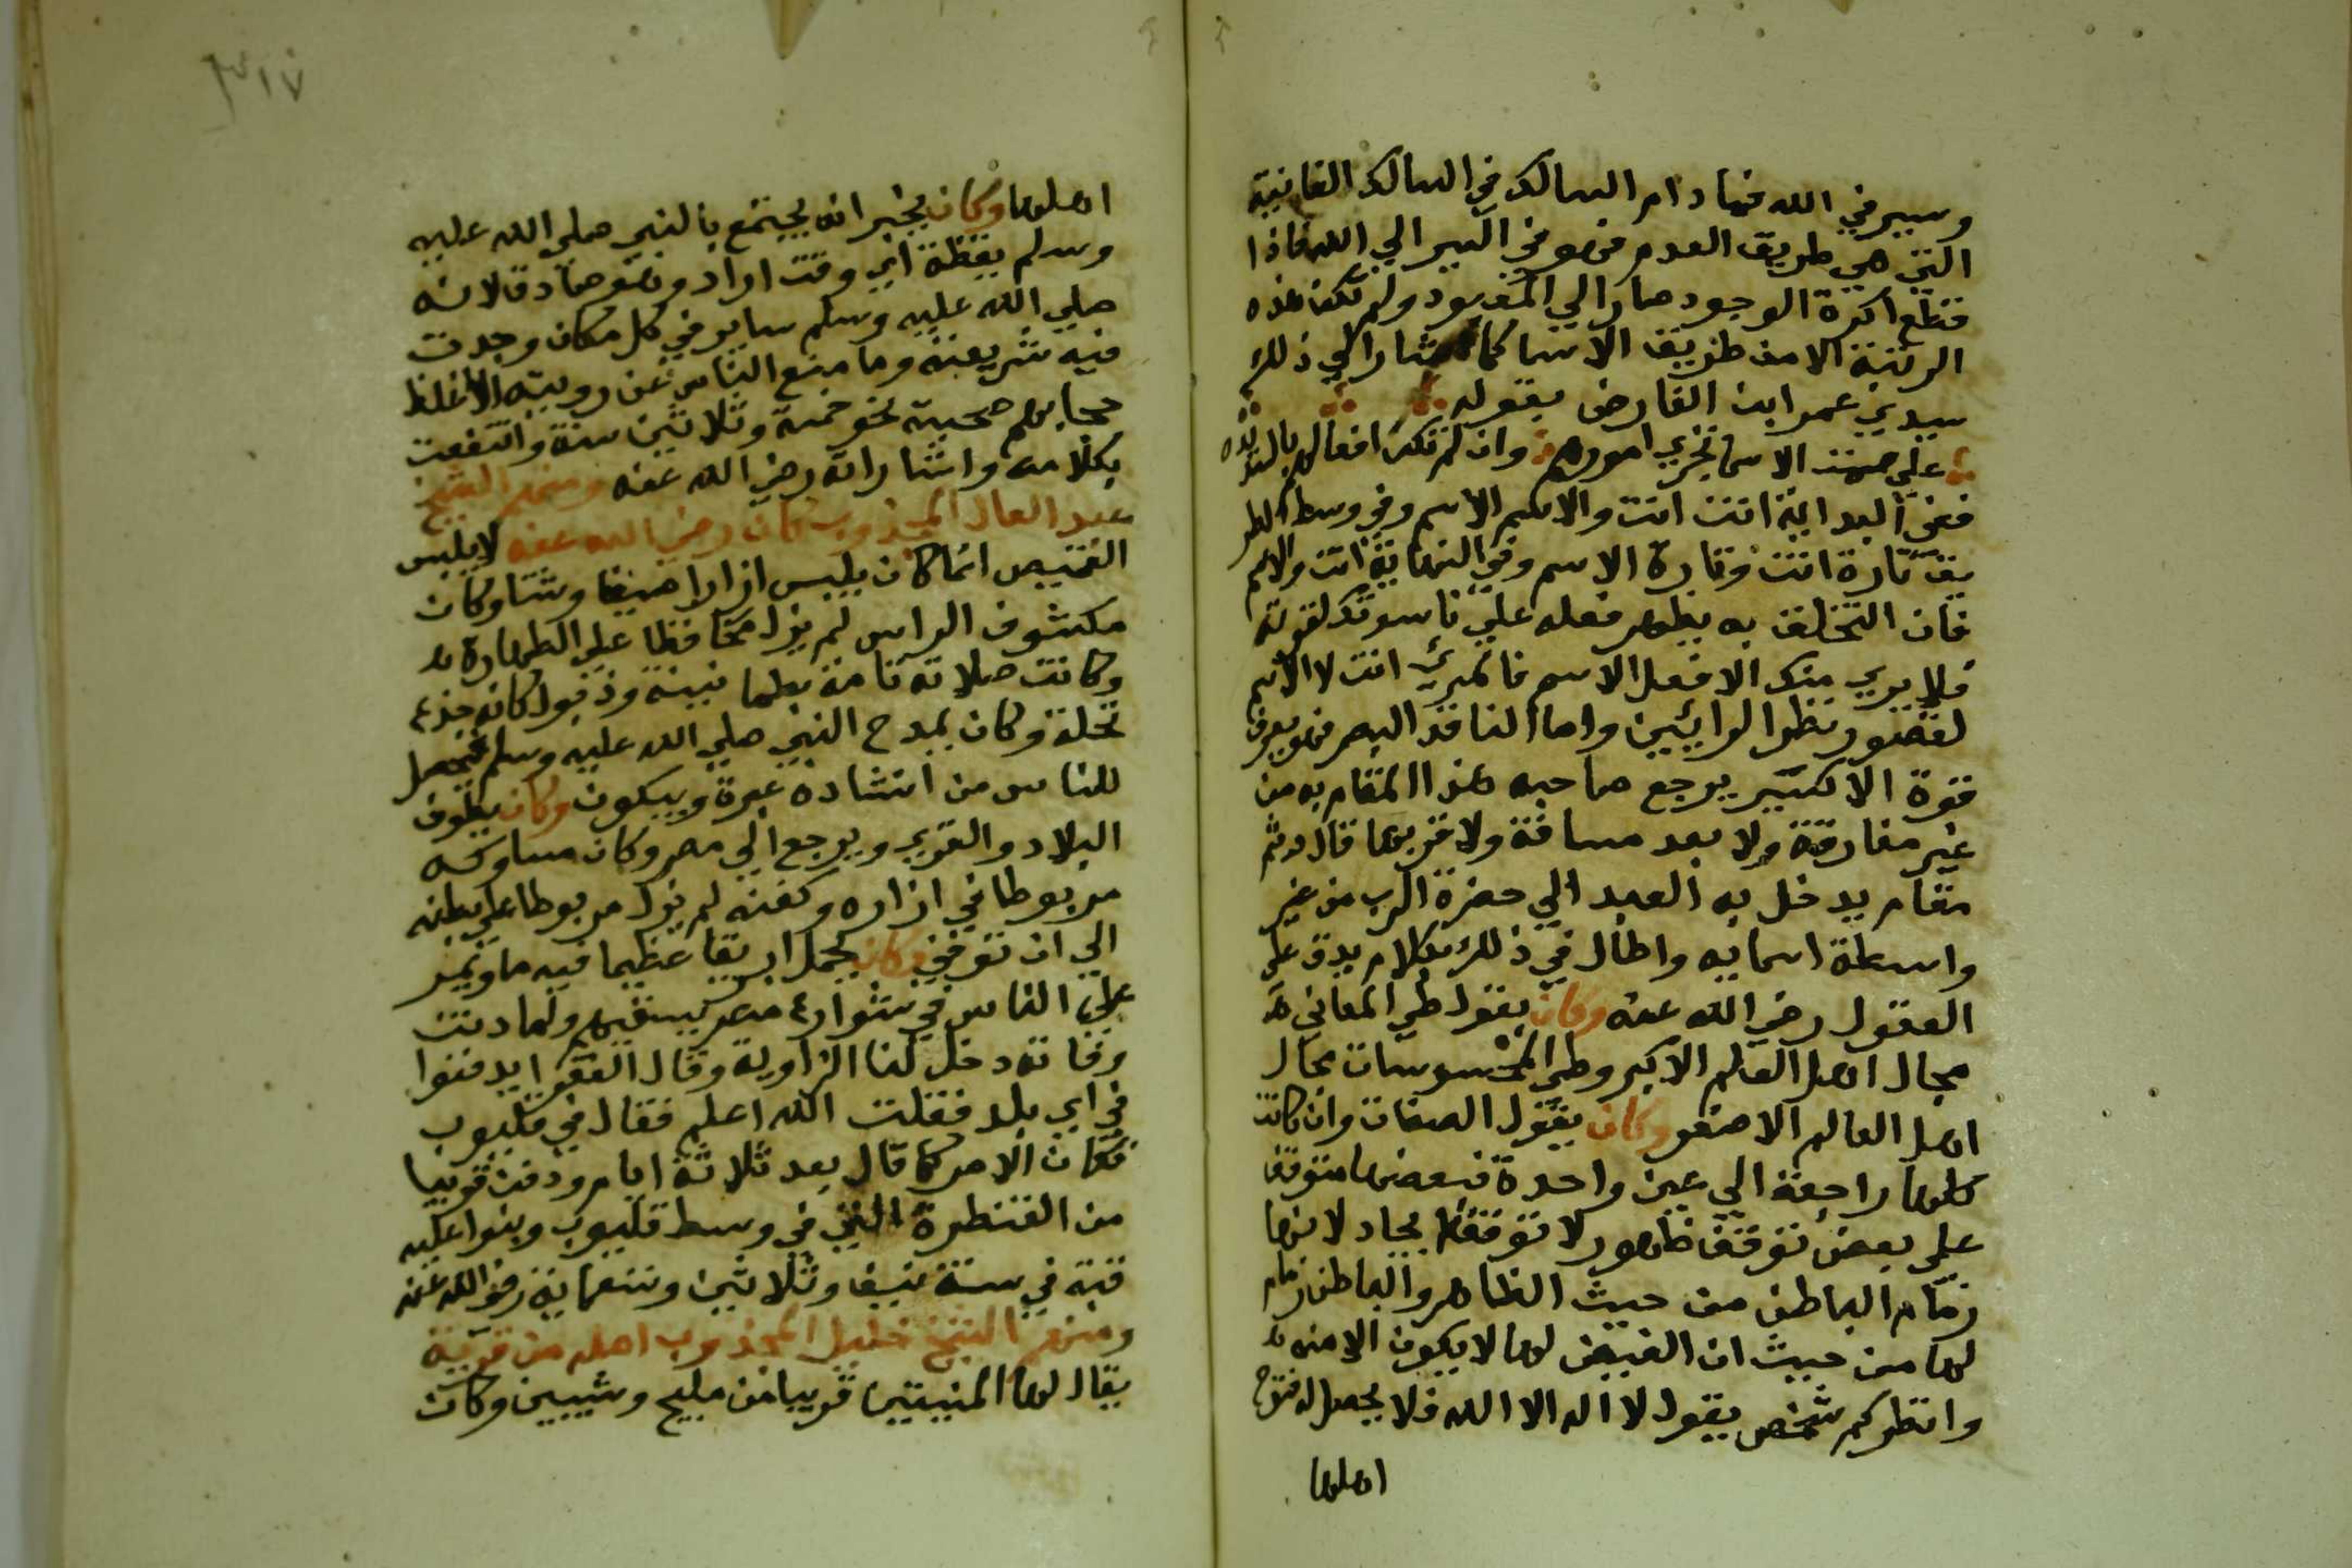 وسير في الله فما دام السالك في المسالك الفانية
التي هي طريق العدم فهو في السير الي الله فاذا
قطع اكرة الوجود صار الي المعبود ولم تكن هذه
الرتبة الا من طريق الاسما كما اشار الي ذلك
سيدي عمر ابن الفارض بقوله
علي سمت الاسما تجري امورهم وان لم تكن افعالهم بالسديده
ففي البداية انت انت والاسم الاسم وفي وسط الطر
يق تارة انت وتارة الاسم وفي النهاية انت والاسم
فان التخلق به يظهر فعله علي ناسوتك لقوته
فلا يري منك الا فعل الاسم فالمرئ انت لا الاسم
لقصور نظر الرائيين واما الناقد البصر فهو يعرف
قوة الاكسير يرجع صاحبه هذا المقام به من
غير مفارقة ولا بعد مسافة ولا قربها قال وثم
مقام يدخل به العبد الي حضرة الرب من غير
واسطة اسمايه واطال في ذلك بكلام يدق علي
العقول رضي الله عنه وكان يقول طي المعاني
مجال اهل العالم الاكبر وطي المحسوسات مجال
اهل العالم الاصغر وكان يقول الصفات وان كانت
كلها راجعة الي عين واحدة فبعضها متوقف
علي بعض توقف ظهور لا توقف ايجاد لانها
زمام الباطن من حيث الظاهر والباطن زمام
لها من حيث ان الفيض لها لا يكون الا منه
وانظر كم شخص يقول لا اله الا الله فلا يحصل له فتوح
اهلها
٣١٧
اهلها وكان يخبر انه يجتمع بالنبي صلي الله عليه
وسلم يقظة اي وقت اراد وهو صادق لانه
صلي الله عليه وسلم ساير في كل مكان وجدت
فيه شريعته وما منع الناس من رويته الا غلظ
حجابهم صحبته نحو خمسة وثلاثين سنة وانتفعت
بكلامه واشاراته رضي الله عنه ومنهم الشيخ
عبد العال المجذوب كان رضي الله عنه لا يلبس
القميص انما كان يلبس ازارا صيفا وشتا وكان
مكشوف الراس لم يزل محافظا علي الطهارة
وكانت صلاته تامة بطمانينة وذبول كانه جذع
نخلة وكان يمدح النبي صلي الله عليه وسلم فيحصل
للناس من انشاده عبرة ويبكون وكان يطوف
البلاد والقري ويرجع الي مصر وكان مساوكه
مربوطا في ازاره وكفنه لم يزل مربوطا علي بطنه
الي ان توفي وكان يحمل ابريقا عظيما فيه ما ويمر
علي الناس في شوارع مصر يسقيهم ولما دنت
وفاته دخل لنا الزاوية وقال الفقرا يدفنوا
في اي بلد فقلت الله اعلم فقال في قليوب
فكان الامر كما قال بعد ثلاثة ايام ودفن قريبا
من القنطرة التي في وسط قليوب وبنوا عليه
قبة في سنة نيف وثلاثين وتسعماية رضي الله عنه
ومنهم الشيخ خليل المجذوب اهله من قرية
يقال لها المنيتين قريبا من مليج وشيبين وكان